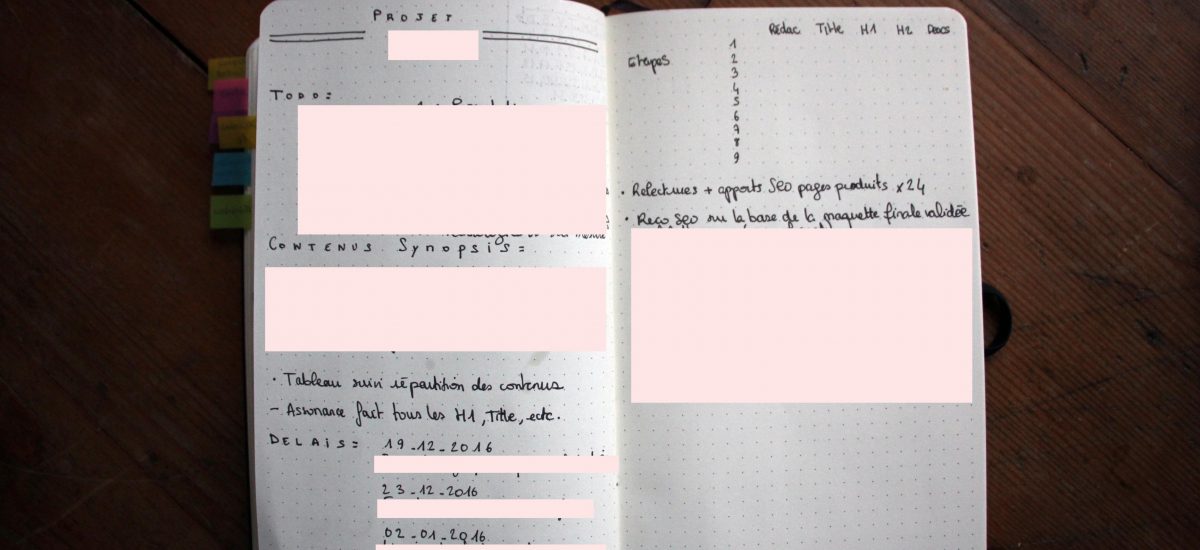 PROJET
TODO:
CONTENUS Synopsis =
· Tableau suivi répartition des contenus
- Assonance fait tous les H1, Title, ectc.
DELAIS = 19-12-2016
23-12-2016
02-01-2016
Rédac Title H1 H2 Descs
1
Etapes 2
3
4
5
6
7
8
9
· Relectures + apports SEO pages produits x24
· Reco SEO sur la base de la maquette finale validée